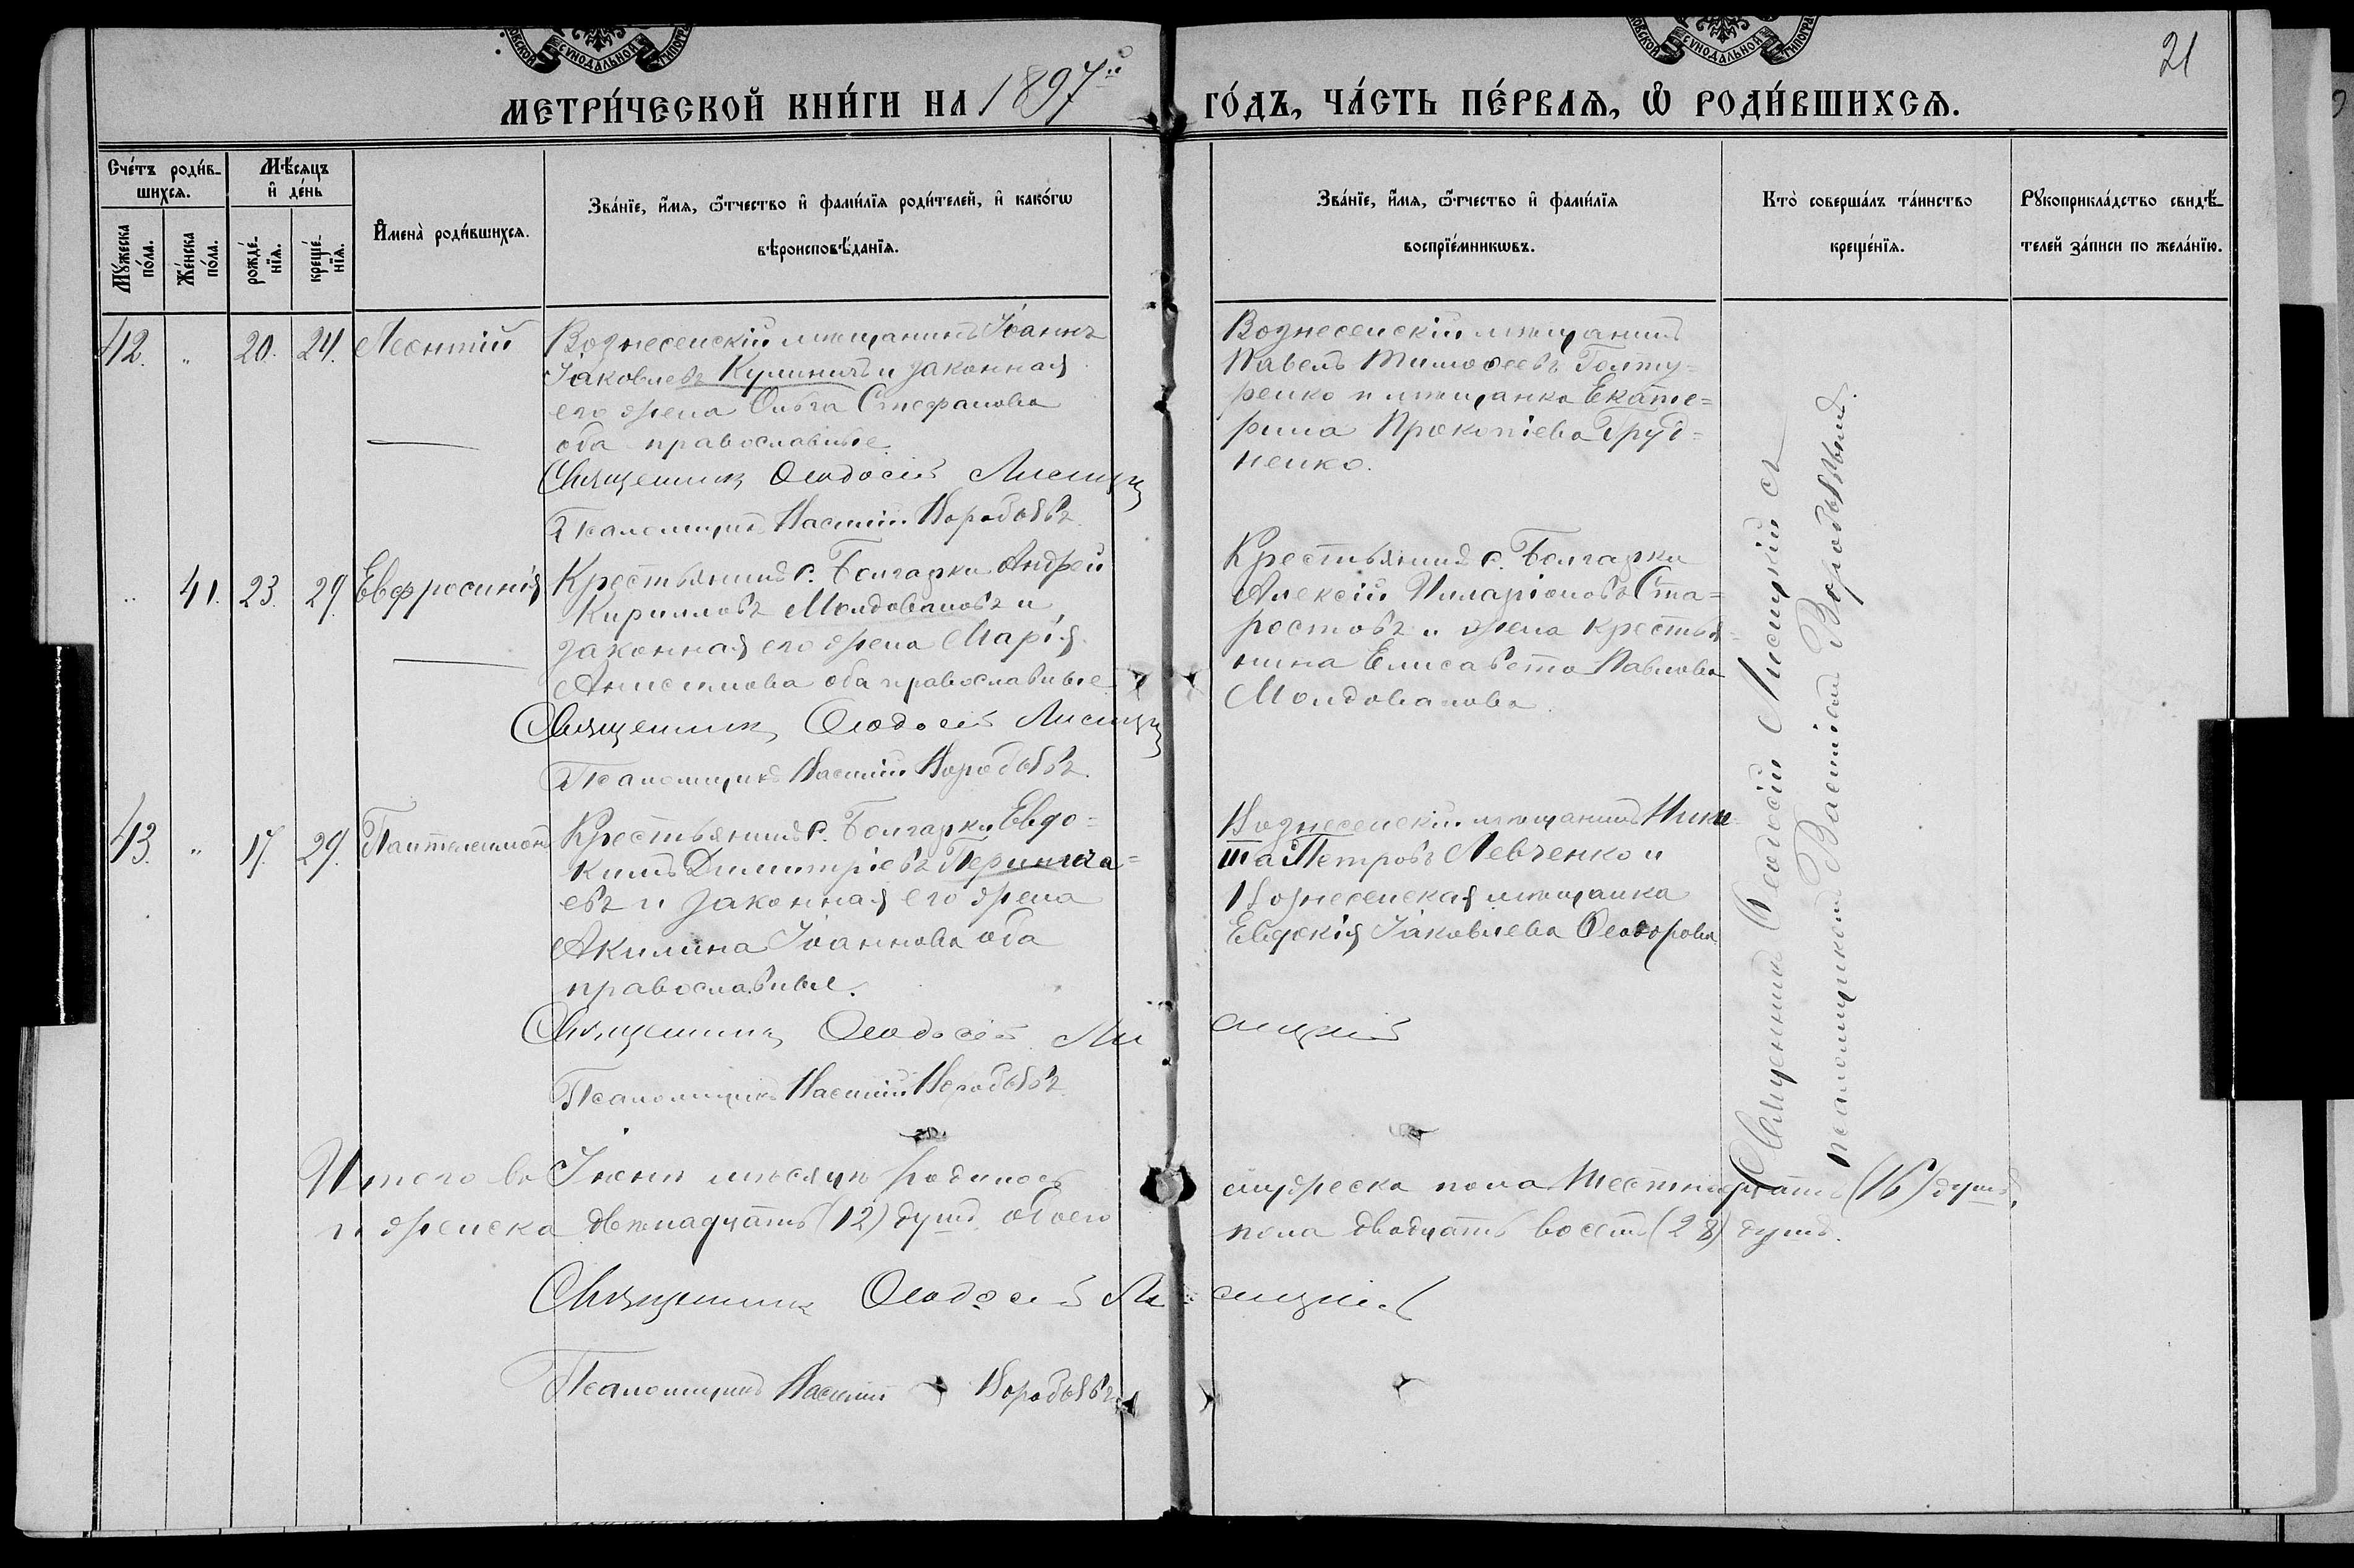 21
МЕТРИ́ЧЕСКОЙ КНИ́ГИ НА 1897й ГО́ДЪ, ЧА́СТЬ ПЕ́РВАЯ, Ѿ РОДИ́ВШИХСЯ.
Сче́тъ роди́в-
шихся.
Мꙋ́жеска по́ла.
Же́нска по́ла.
Мѣ́сяцъ
и де́нь
рожде́-
нїя.
креще́-
нїя.
Имена̀ роди́вшихся.
Зва́нїе, и́мя, ѻ́тчество и фами́лїя роди́телей, и како́гѡ
вѣроисповѣ́данїя.
Зва́нїе, и́мя, ѻ́тчество и фами́лїя
воспрїе́мникѡвъ.
Кто̀ соверша́лъ та́инство
креще́нїя.
Рꙋкоприкла́дство свидѣ́-
телей за́писи по жела́нїю.
42. " 20. 24. Леонтій
Вознесенскій мѣщанинъ Іоаннъ
Іаковлевъ Кулиничъ и законная
его жена Ольга Стефанова
оба православные
Священникъ Ѳеодосій Лисицкій
Псаломщикъ Василій Воробьевъ
Вознесенскій мѣщанинъ
Павелъ Тимоѳеевъ Голту-
ренко и мѣщанка Екате-
рина Прокопіева Груд-
ненко.
" 41. 23. 29. Евфросинія
Крестьянинъ с. Болгарки Андрей
Кирилловъ Молдовановъ и
законная его жена Марія
Анисимова оба православные
Священникъ Ѳеодосій Лисицкій
Псаломщикъ Василій Воробьевъ.
Крестьянинъ с. Болгарки
Алексій Иларіоновъ Ста-
ростовъ и жена крестья-
нина Елисавета Павлова
Молдованова.
43. " 17. 29. Пантелеимонъ
Крестьянинъ с. Болгарки Евдо-
кимъ Димитріевъ
евъ и законная его жена
Акилина Іоаннова оба
православные.
Священникъ Ѳеодосій Лисицкій
Псаломщикъ Василій Воробьевъ
Вознесенскій мѣщанинъ Ники-
та Петровъ Левченко и
Вознесенская мѣщанка
Евдокія Іаковлева Ѳеодорова
Священникъ Ѳеодосій Лисицкій съ
псаломщикомъ Василіемъ Воробьевымъ.
Итого въ Іюнѣ мѣсяцѣ родилось мужеска пола шестнадцать (16) душъ,
и женска двѣнадцать (12) душъ. обоего пола двадцать восемь (28) душъ.
Священникъ Ѳеодосій Лисицкій
Псаломщикъ Василій Воробьевъ